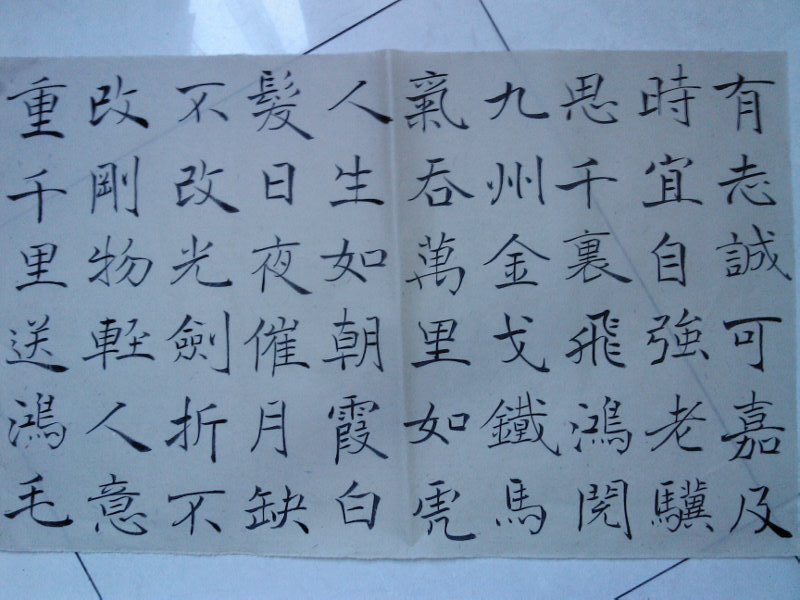 有志誠可嘉及
時宜自強老驥
思千裏飛鴻閱
九州金戈鐵馬
氣吞萬里如虎
人生如朝霞白
髮日夜催月缺
不改光劍折不
改剛物軽人意
重千里送鴻毛